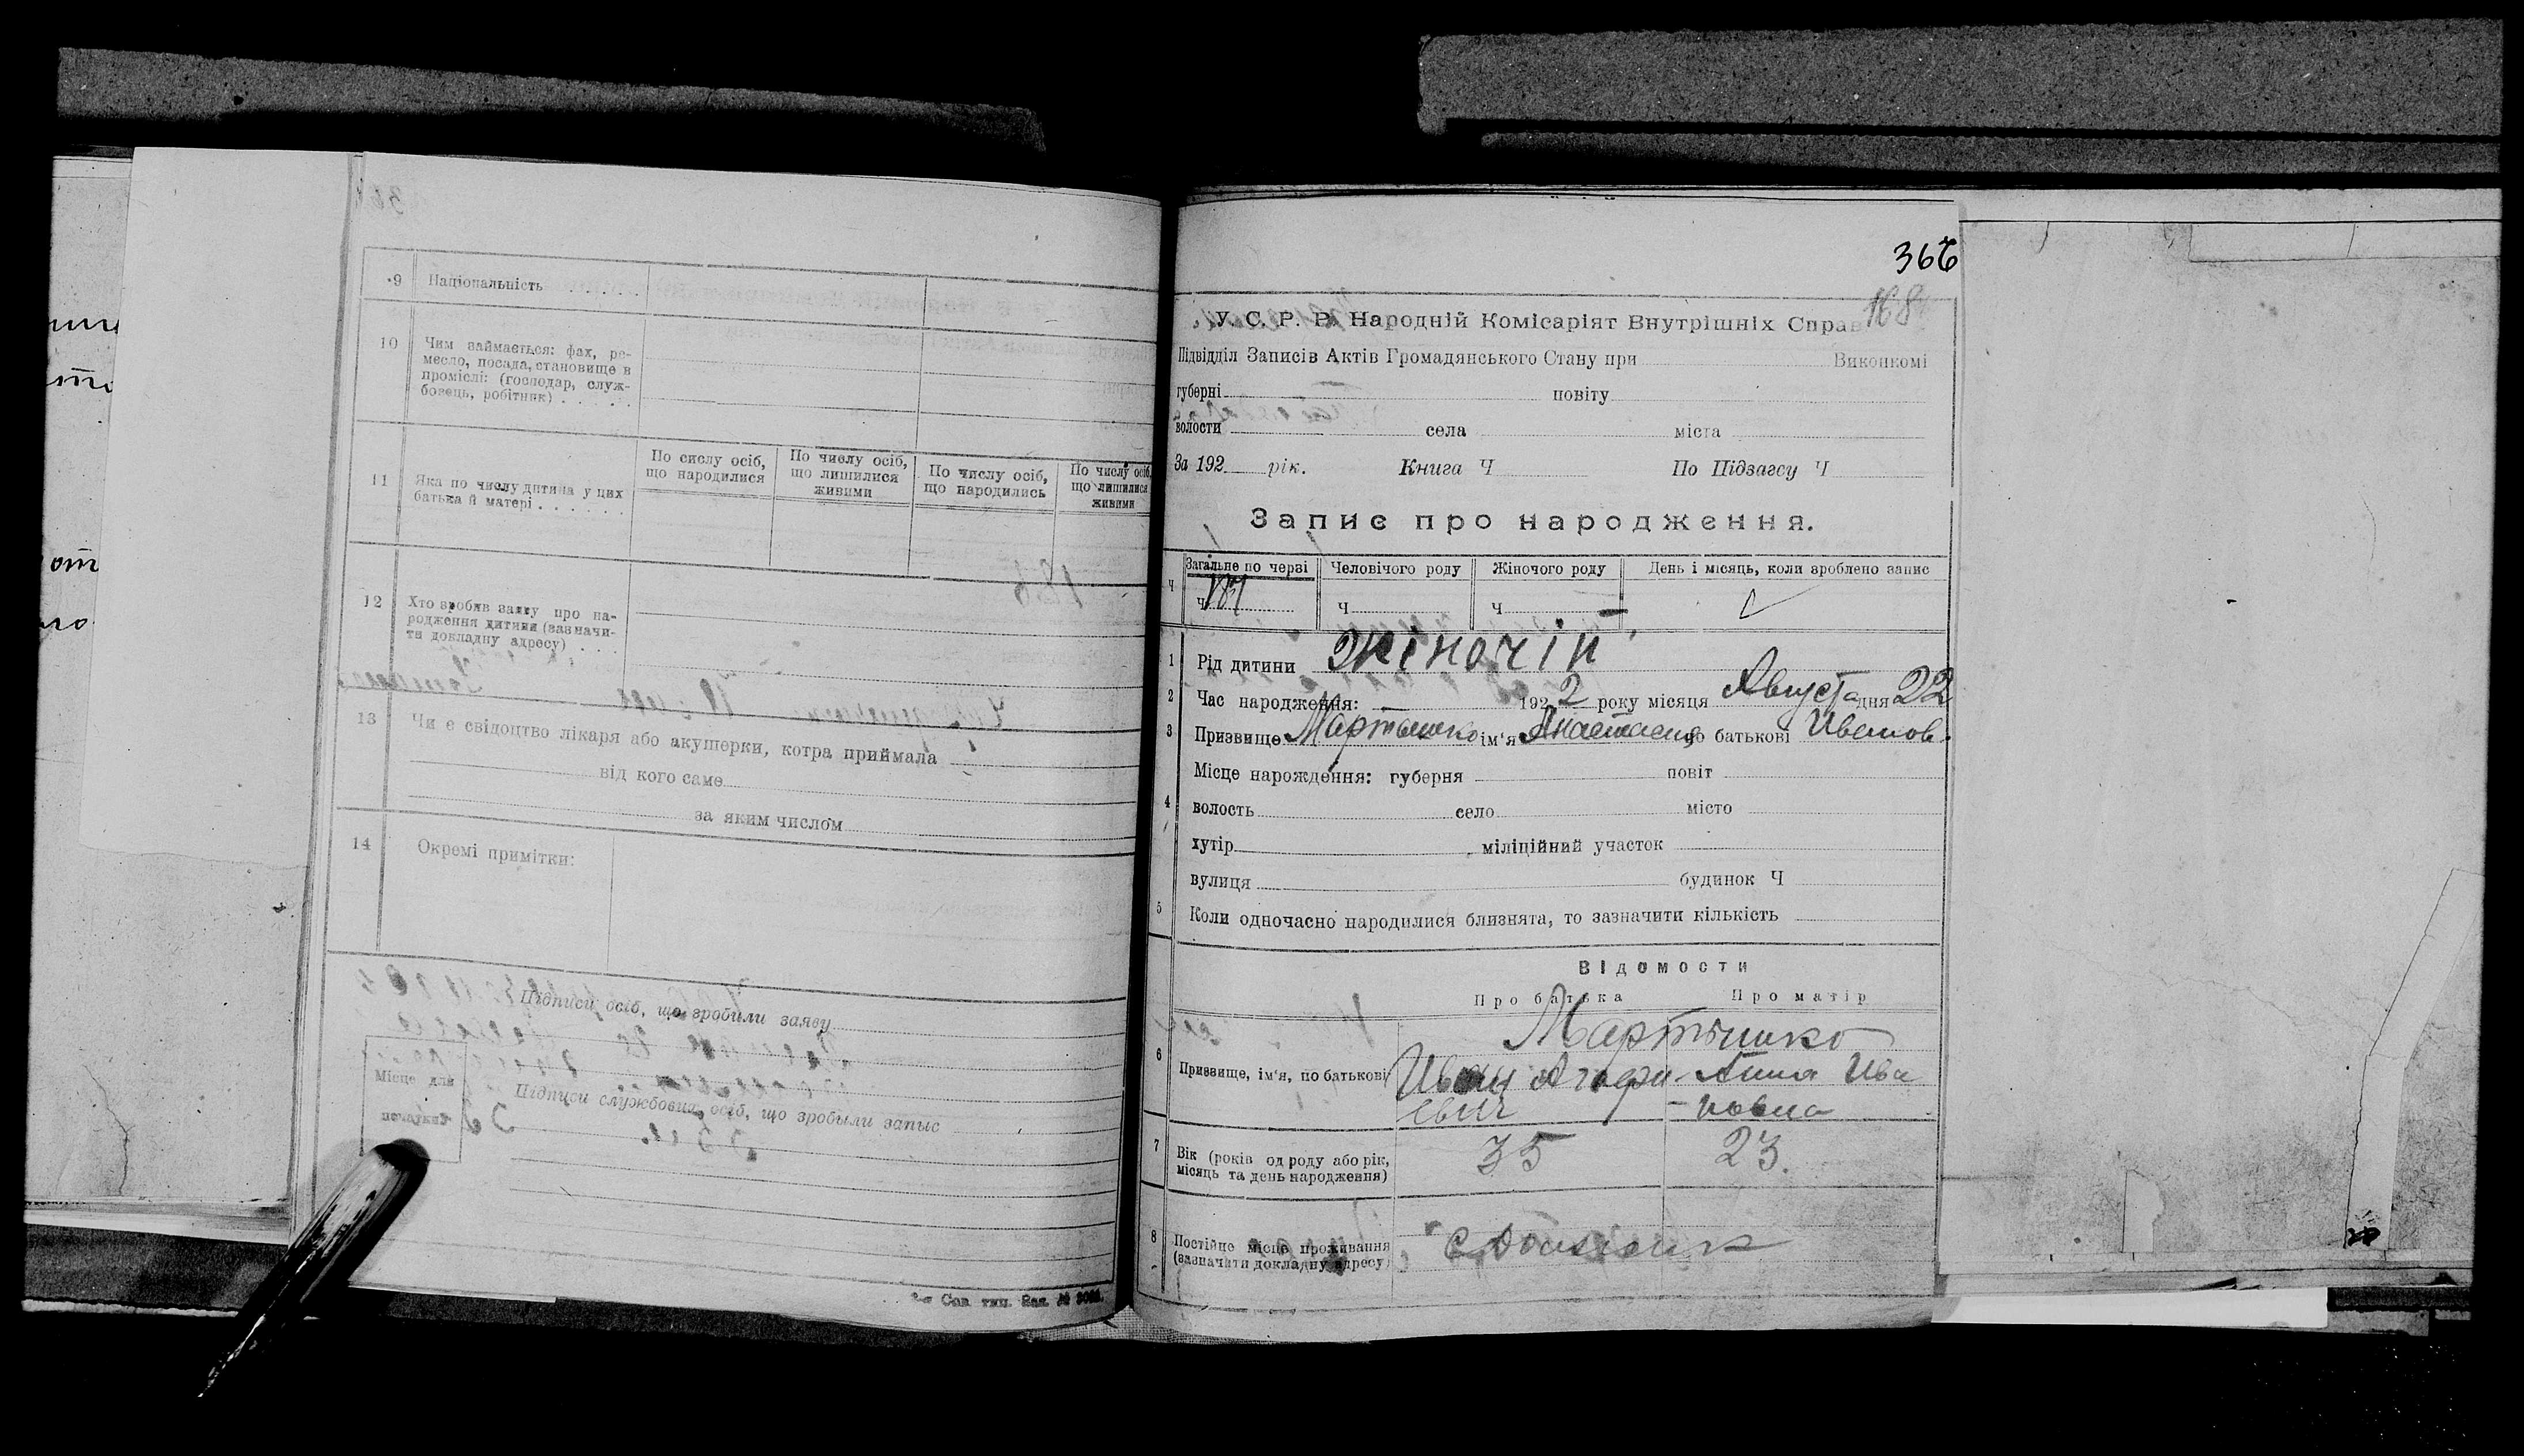 9 Національність . . . . . .
10 Чим займається: фах, ре-
месло, посада, становище в
промислі: (господар, служ-
бовець, робітник) . . . . .
11 Яка по числу дитина у цих
батька й матері . . . . . .
По сислу осіб,
що народилися
По числу осіб,
що лишилися
живими
По числу осіб,
що народились
По числу осіб,
що лишилися
живими
12 Хто зробив заяву про на-
родження дитини (зазначи-
ти докладну адресу) . . .
13 Чи є свідоцтво лікаря або акушерки, котра приймала
від кого саме
за яким числом
14 Окремі примітки:
Підписи осіб, що зробили заяву
Місце для
печатки
Підписи службових осіб, що зробыли запыс
366
168
У. С. Р. Р. Народній Комісаріят Внутрішніх Справ
Підвідділ Записів Актів Громадянського Стану при Виконкомі
губерні повіту
волости села міста
За 192 рік. Книга Ч По Підзагсу Ч
Запис про народження.
Ч Загальне по черзі Человічого роду Жіночого роду День і місяць, коли зроблено запис
Ч Ч Ч
1 Рід дитини жіночій
2 Час народження: 1922 року місяця Августа дня 22
3 Призвище Мартышко ім'я Анастасия по батькові Иванов.
Місце народження: губерня повіт
4 волость село місто
хутір міліційний участок
вулиця будинок Ч
5 Коли одночасно народилися близнята, то зазначити кількість
Відомости
Про батька Про матір
Мартышко
6 Призвище, ім'я, по батькові Иван Анна Ива
евич - новна
7 Вік (років од роду або рік,
місяць та день народження) 35 23.
8 Постійне місце проживання
(зазначити докладну адресу)